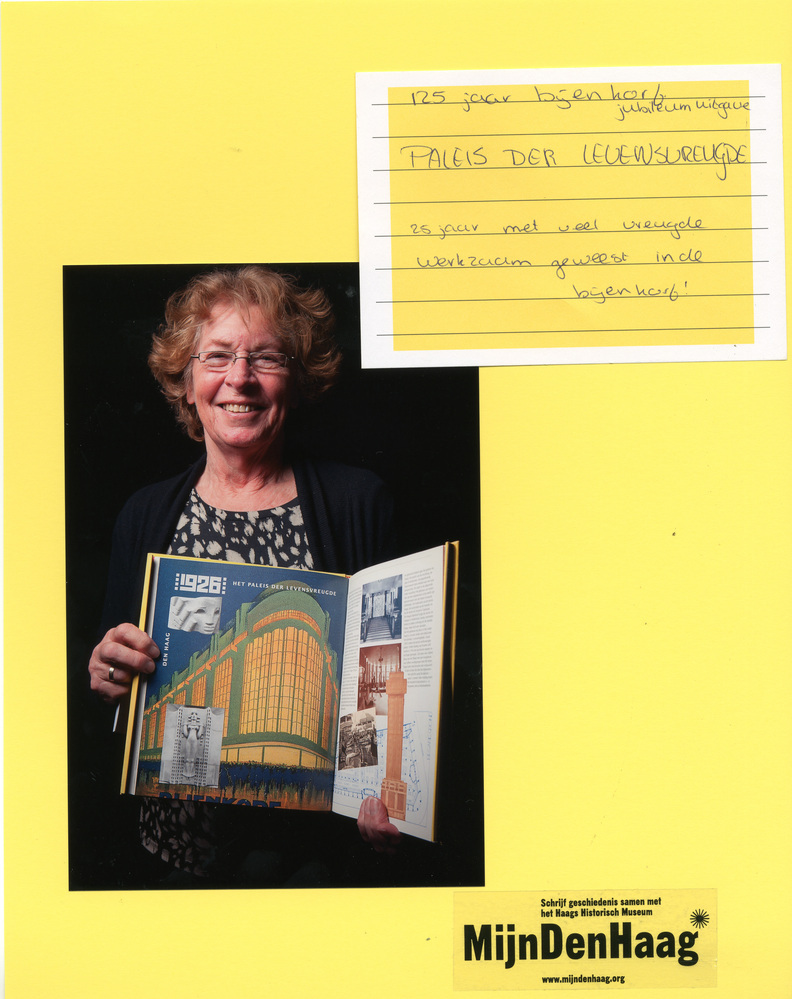 125 jaar bijenkorf
jubileum uitgave
PALEIS DER LEVENSVREUGDE
25 jaar met veel vreugde
werkzaam geweest in de
bijenkorf!
1926
HET PALEIS DER LEVENSVREUGDE
DEN HAAG
BIJENKORF
Schrijf geschiedenis samen met
het Haags Historisch Museum
MijnDenHaag
www.mijndenhaag.org